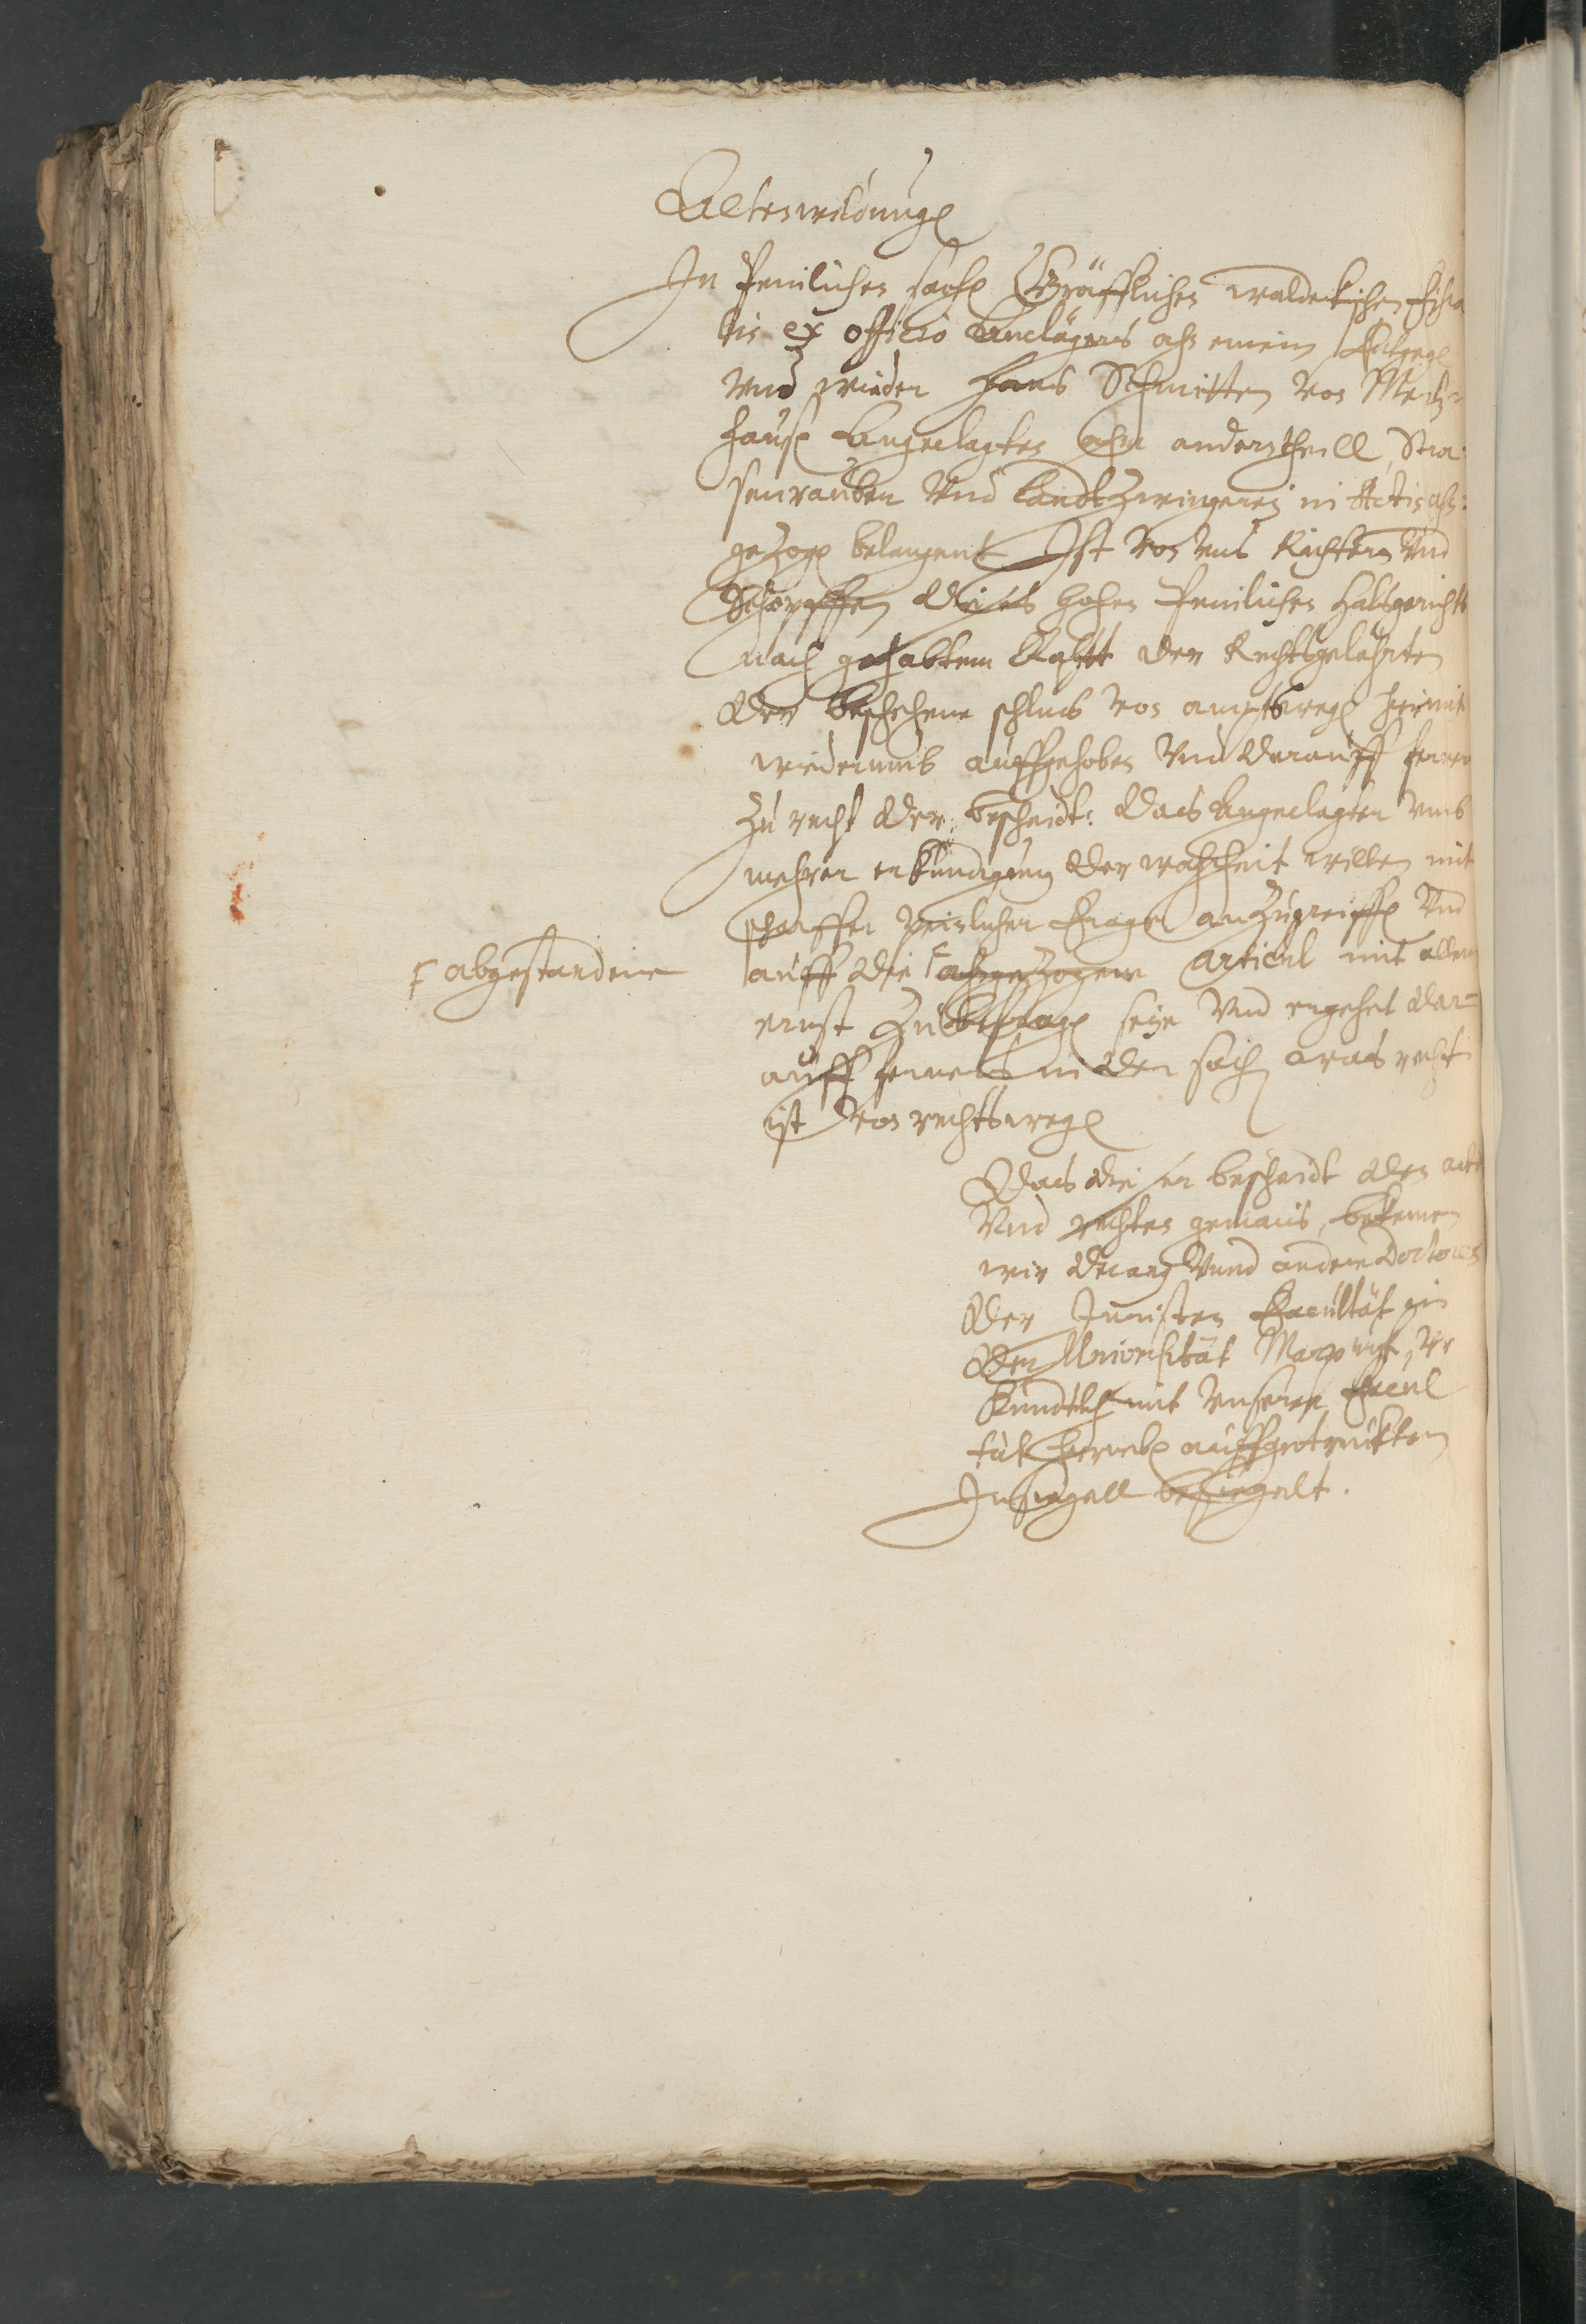 Altenwildungen
In Peinlicher sachen Gräfflichen waldeckischen Fisca
lis ex officio Anclägers ahn einem entgegen
Vnd wieder Hans Schmitten von
hausen Angeclagten ahm anderstheill, Stra
senrauben Vnd Landtzwingerey in Actis ahn
gezogen belangent Ist von Vns Richtern Vnd
Schöpffen dieses hohen Peinlichen Halsgerichts
nach gehabtem Rahtt der Rechtsgelährten
der beschehene schlus von amptswegen hiermit
wiederumb auffgehoben Vnd darauff ferner
zu recht der bescheidt: das Angeclagter vmb
mehrer erkundigung der warheit willen mit
scharffer peinlicher Frage anzugreiffen Vnd
F abgestandene
auff die F ahngezogene Articul mit allem
ernst zu befragen seye Vnd ergehet dar=
auff ferner in der sach was recht
ist Von rechtswegen
Das dieser bescheidt den acten
Vnd rechten gemäs, bekennen
wir Decanus Vnnd andere Doctores
der Juristen Facultät in
der Universität Marpurgk, Vr
kundtlich mit Vnserer Facul
tät hierneben auffgetrucktem
Insiegell besiegelt.